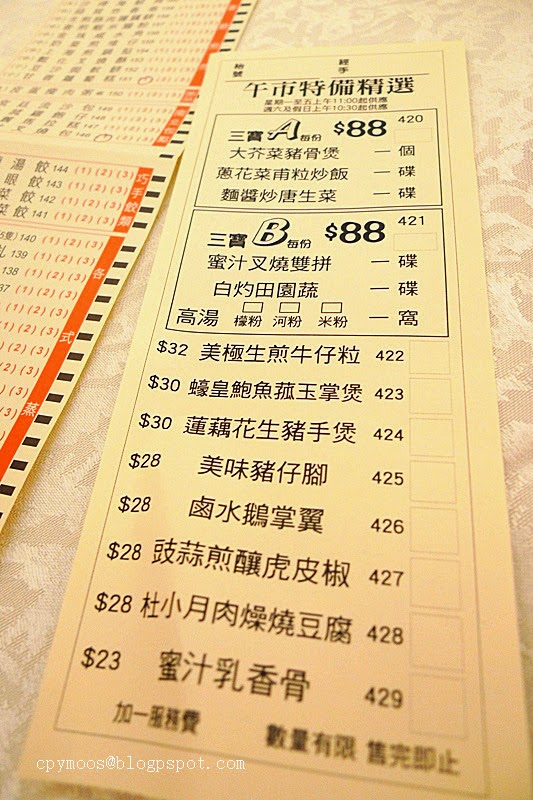 枱號
經手
午市特備精選
星期一至五上午11:00起供應
週六及假日上午10:30起供應
三寶A每份 $88 420
大芥菜豬骨煲 一個
蔥花菜甫粒炒飯 一碟
麵醬炒唐生菜 一碟
三寶B每份 $88 421
蜜汁叉燒雙拼 一碟
白灼田園蔬 一碟
高湯 檬粉 河粉 米粉 一窩
$32 美極生煎牛仔粒 422
$30 蠔皇鮑魚菰玉掌煲 423
$30 蓮藕花生豬手煲 424
$28 美味豬仔腳 425
$28 鹵水鵝掌翼 426
$28 豉蒜煎釀虎皮椒 427
$28 杜小月肉燥燒豆腐 428
$23 蜜汁乳香骨 429
加一服務費
數量有限 售完即止
湯餃 144 (1) (2) (3)
眼餃 143 (1) (2) (3)
菜餃 142 (1) (2) (3)
菜餃 141 (1) (2) (3)
巧手餃類
140 (1) (2) (3)
139 (1) (2) (3)
138 (1) (2) (3)
37 (1) (2) (3)
各式蒸
cpymoos@blogpspot.com